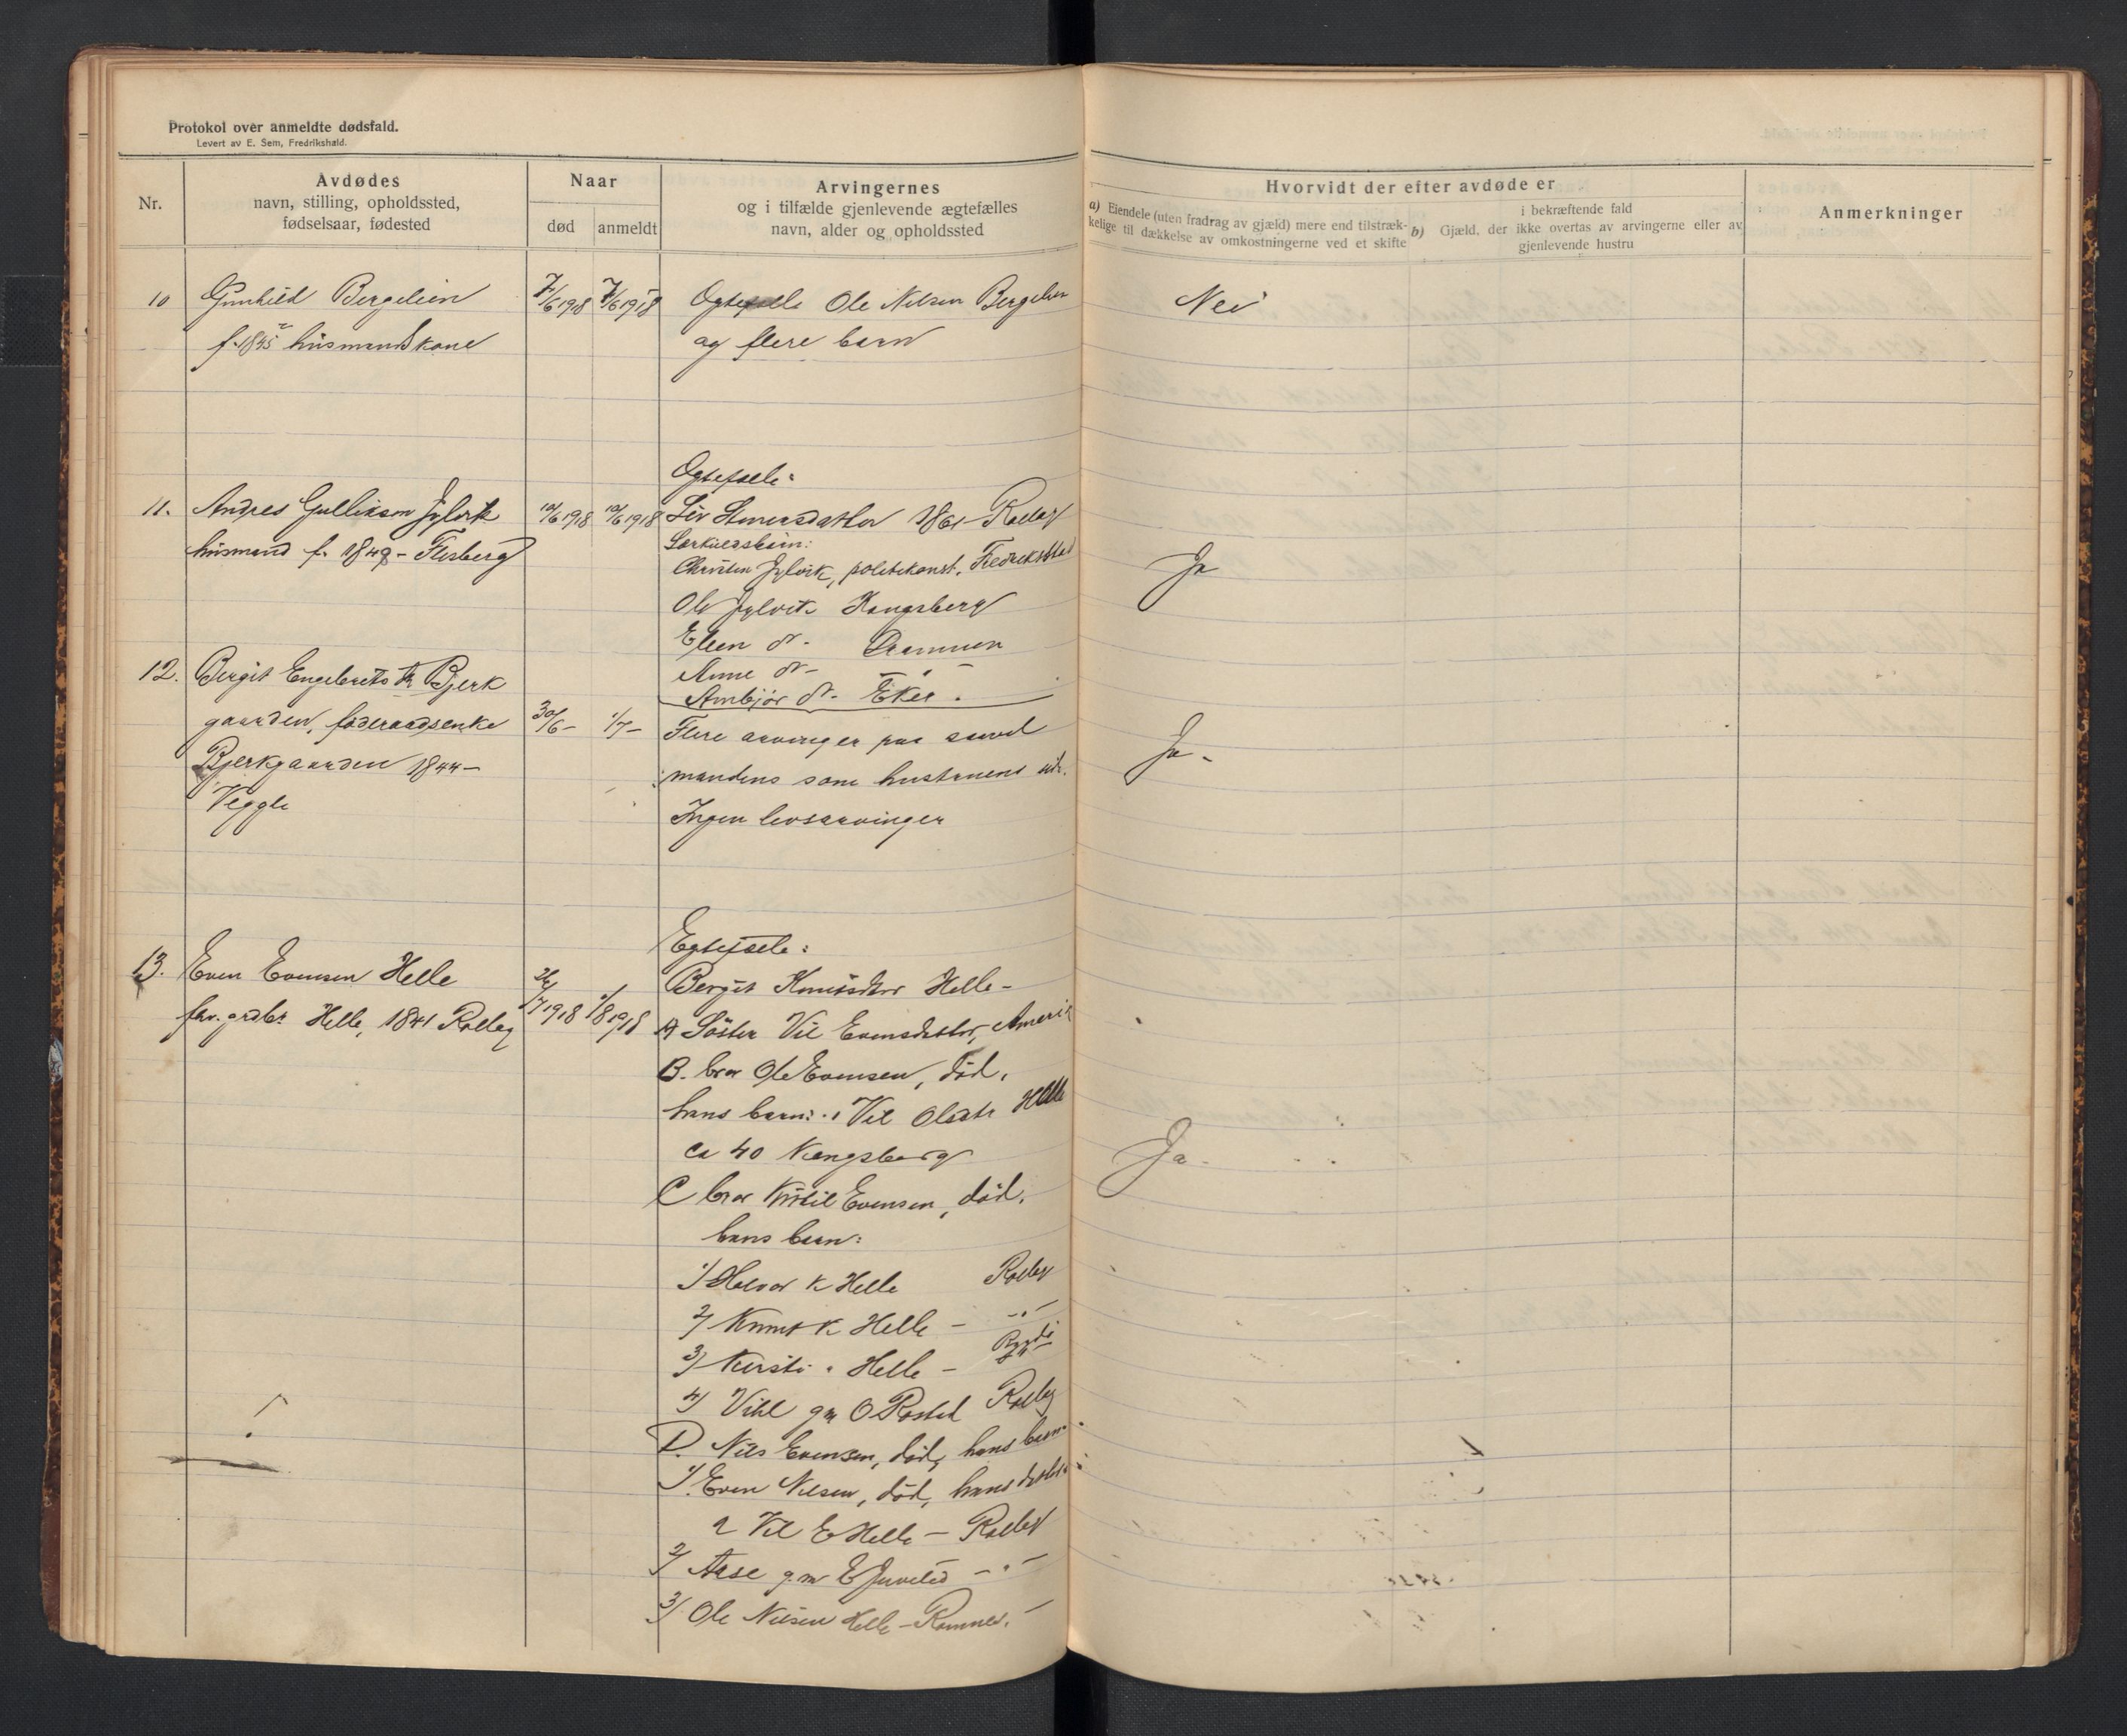 Protokol over anmeldte dødsfald.
Levert av E. Sem, Fredrikshald.
Nr.
Avdødes
navn, stilling, opholdssted,
fødselsaar, fødested
Naar
død
anmeldt
Arvingernes
og i tilfælde gjenlevende ægtefælles
navn, alder og opholdssted
Hvorvidt der efter avdøde er
a) Eiendele (uten fradrag av gjæld) mere end tilstræk-
kelige til dækkelse av omkostningerne ved et skifte
b)
i bekræftende fald
Gjæld, der ikke overtas av arvingerne eller av
gjenlevende hustru
Anmerkninger
10 Gunhild Bergelien 7/6 1918 7/6 1918 Ogtefelle Ole Nilsen Bergelien Nei
f. 1845 husmandskone og flere barn
Ogtefæle:
11. Andres Gulliksen Jylvik 10/6 1918 10/6 1918 Liv 1861 - Rollag
husmand f. 1849 - Flesberg
Særkuldsbarn:
Christen Jylvik, politikonst. Fredrikstad Ja
Ole Jylvik Kongsberg
Elen do- Drammen
Anne do- - " -
Ambjør do- Eker.
12. Bergit Engebrets dtr Bjerk
gaarden, føderaadsenke 30/6 - 1/7 - Flere arvinger paa saavel Ja -
Bjerkgaarden 1844 - mandens som hustruens side.
Veggli Ingen livsarvinger
Egtefæle:
13. Even Evensen Helle 26/7 1918 1/8 1918 Bergit Knutsdtr Helle -
fhv. grdbr Helle, 1841 Rollag A Søster Vil Evensdatter, Amerik
B. bror Ole Evensen, død,
hans barn: 1 Vil Olsdtr Helle
ca 40 Kongsberg Ja -
C bror Kittil Evensen, død.
hans barn:
1/ Halvor K Helle Rollag
2/ Knut K Helle - - " -
3/ Kirsti " Helle -
4/ Vihl gm O Rostad Rollag
D. Nils Evensen, død, hans barn:
1/ Even Nilsen, død, hans datter:
Vil E Helle - Rollag
2/ Aase gm E Juvelid - " -
3/ Ole Nilsen Helle -